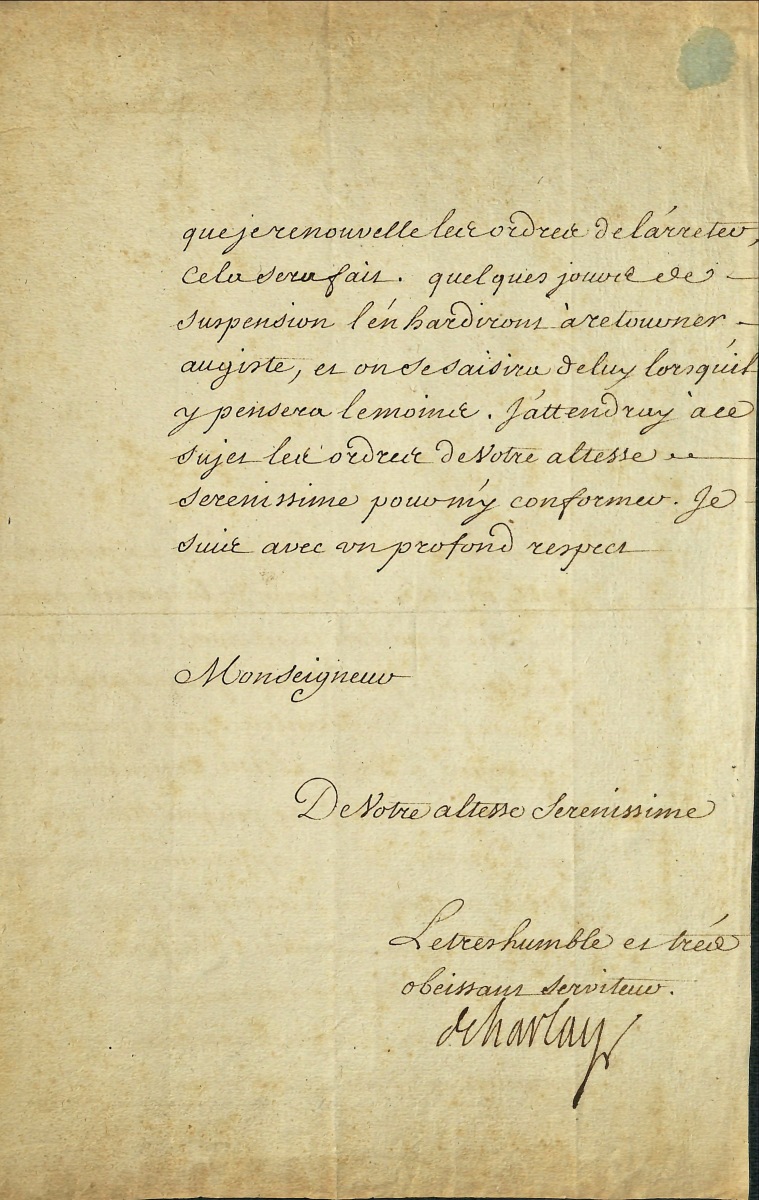 que je renouvelle les ordres de l'árreter,
Cela sera fait. quelques jours de
suspension l'énhardiront à retourner
au giste, et on se saisira de luy lorsquil
y pensera le moins. J'áttendray à ce
sujet les ordres de Votre altesse
serenissime pour m'y conformer. Je
suis avec un profond respect
Monseigneur
De Votre altesse Serenissime
Le tres humble et trés
obeissant serviteur.
de harlay